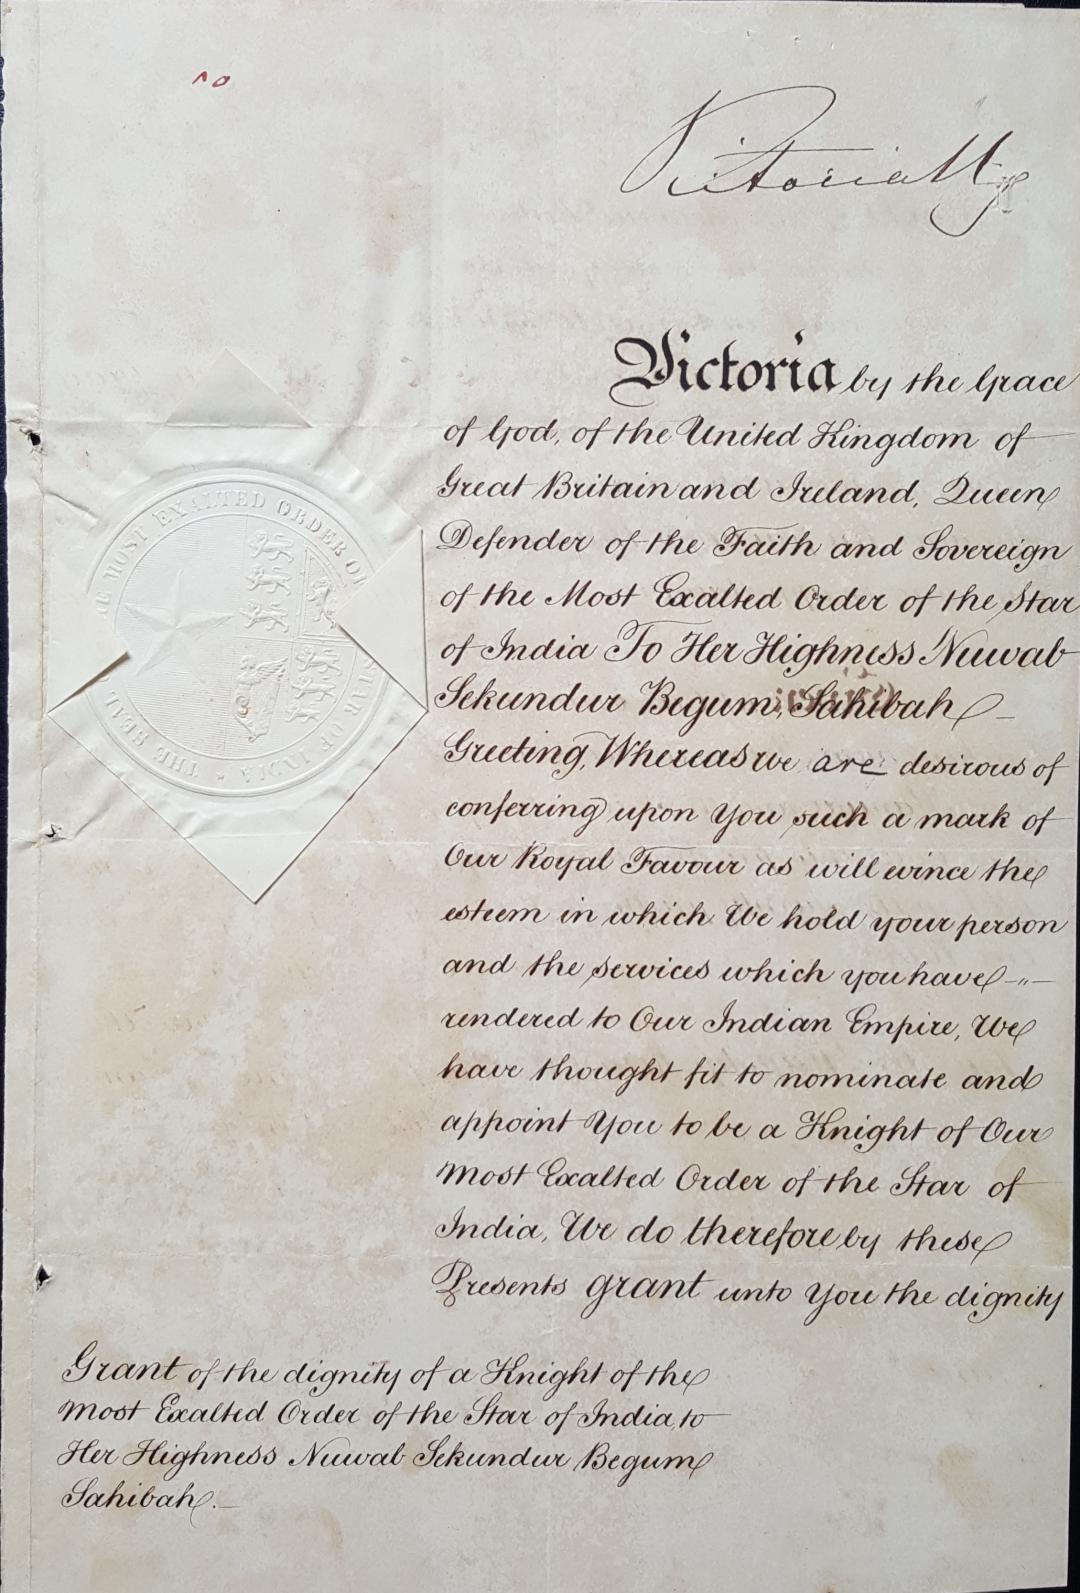 Victoria R
Victoria by the Grace
of God, of the United Kingdom of
Great Britain and Ireland, Queen
Defender of the Faith and Sovereign
of the Most Exalted Order of the Star
of India To Her Highness Nuwab
Sekundur Begum, Sahibah
Greeting, Whereas we are desirous of
conferring upon You such a mark of
Our Royal Favour as will evince the
esteem in which We hold your person
and the services which you have
rendered to Our Indian Empire, We
have thought fit to nominate and
appoint You to be a Knight of Our
Most Exalted Order of the Star of
India, We do therefore by these
Presents grant unto You the dignity
THE SEAL OF THE MOST EXALTED ORDER OF THE STAR OF INDIA
Grant of the dignity of a Knight of the
Most Exalted Order of the Star of India, to
Her Highness Nuwab Sekundur Begum
Sahibah.